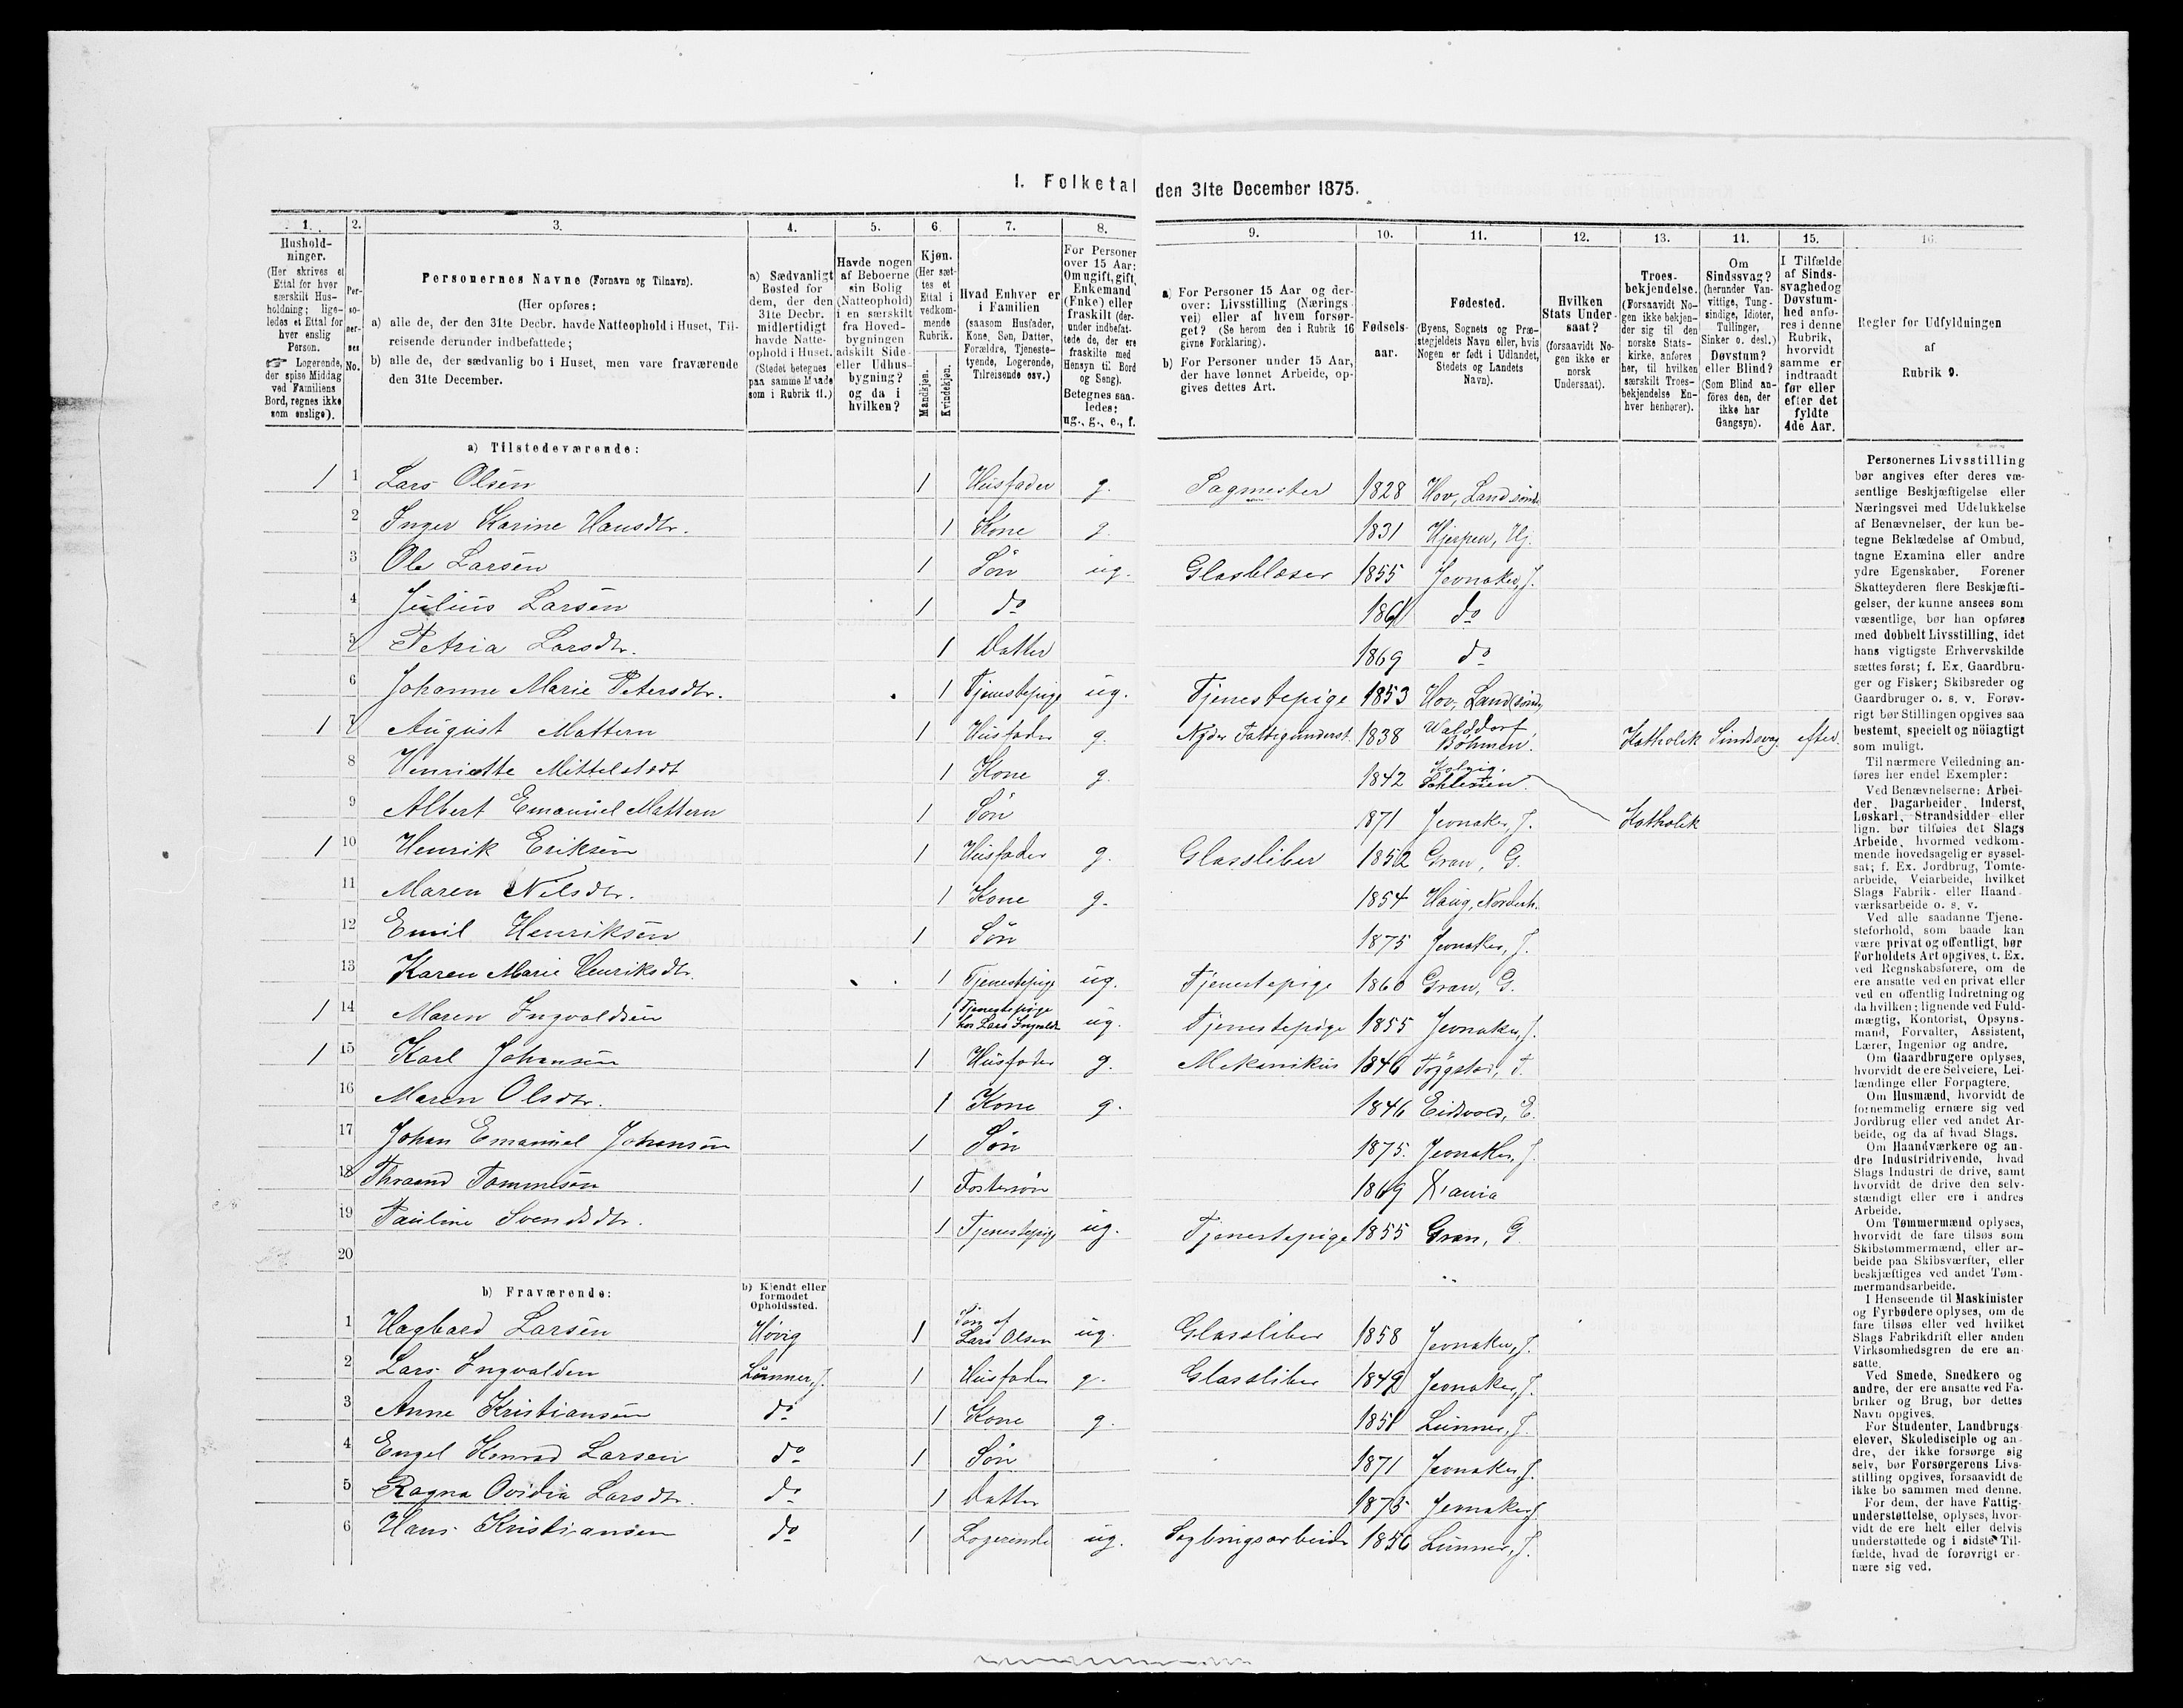 I. Folketal den 31te December 1875.
1. 2. 3. 4. 5. 6. 7. 8. 9. 10. 11. 12. 13. 14. 15. 16.
Hushold-
ninger.
(Her skrives et
Ettal for hver
særskilt Hus-
holdning; lige-
ledes et Ettal for
hver enslig
Person.
☞ Logerende,
der spise Middag
ved Familiens
Bord, regnes ikke
som enslige).
Per-
so-
ner-
nes
No.
Personernes Navne (Fornavn og Tilnavn).
(Her opføres:
a) alle de, der den 31te Decbr. havde Natteophold i Huset, Til-
reisende derunder indbefattede;
b) alle de, der sædvanlig bo i Huset, men vare fraværende
den 31te December.
a) Sædvanligt
Bosted for
dem, der den
31te Decbr.
midlertidigt
havde Natte-
ophold i Huset.
(Stedet betegnes
paa samme Maade
som i Rubrik 11.)
Havde nogen
af Beboerne
sin Bolig
(Natteophold)
i en særskilt
fra Hoved-
bygningen
adskilt Side-
eller Udhus-
bygning?
og da i
hvilken?
Kjøn.
(Her sæt-
tes et
Ettal i
vedkom-
mende
Rubrik.
Mandkjøn.
Kvindekjøn.
Hvad Enhver er
i Familien
(saasom Husfader,
Kone, Søn, Datter,
Forældre, Tjeneste-
tyende, Logerende,
Tilreisende osv.)
For Personer
over 15 Aar:
Om ugift, gift,
Enkemand
(Enke) eller
fraskilt (der-
under indbefat-
tede de, der ere
fraskilte med
Hensyn til Bord
og Seng).
Betegnes saa-
ledes:
ug., g., e., f.
a) For Personer 15 Aar og der-
over: Livsstilling (Nærings-
vei) eller af hvem forsør-
get? (Se herom den i Rubrik 16
givne Forklaring).
b) For Personer under 15 Aar,
der have lønnet Arbeide, op-
gives dettes Art.
Fødsels-
aar.
Fødested.
(Byens, Sognets og Præ-
stegjeldets Navn eller, hvis
Nogen er født i Udlandet,
Stedets og Landets
Navn).
Hvilken
Stats Under-
saat?
(forsaavidt No-
gen ikke er
norsk
Undersaat).
Troes-
bekjendelse.
(Forsaavidt No-
gen ikke bekjen-
der sig til den
norske Stats-
kirke, anføres
her, til hvilken
særskilt Troes-
bekjendelse En-
hver henhører).
Om
Sindssvag?
(herunder Van-
vittige, Tung-
sindige, Idioter,
Tullinger,
Sinker o. desl.)
Døvstum?
eller Blind?
(Som Blind an-
føres den, der
ikke har
Gangsyn).
I Tilfælde
af Sinds-
svaghed og
Døvstum-
hed anfø-
res i denne
Rubrik,
hvorvidt
samme er
indtraadt
før eller
efter det
fyldte
4de Aar.
Regler for Udfyldningen
af
Rubrik 9.
a) Tilstedeværende:
1 1 Lars Olsen 1 Husfader g. Sagmester 1828 Hov, Land søndr
2 Inger Karine Hansdtr. 1 Kone g. 1831 Hjerpen, Hj.
3 Ole Larsen 1 Søn ug. Glasblæser 1855 Jevnaker, J.
4 Julius Larsen 1 do 1861 do
5 Petria Larsdtr. 1 Datter 1869 do
6 Johanne Marie Petersdtr. 1 Tjenestepige ug. Tjenestepige 1853 Hov, Land søndr
1 7 August Mattern 1 Husfader g. Nyder Fattigunderst. 1838 Walddorf, Böhmen. Katholik Sindssvag efter.
8 Henriette Mittelstedt 1 Kone g. 1842 Schlesien.
9 Albert Emanuel Mattern 1 Søn 1871 Jevnaker, J. Katholik
1 10 Henrik Eriksen 1 Husfader g. Glassliber 1852 Gran, G.
11 Maren Nilsdtr. 1 Kone g. 1854 Haug, Norderh.
12 Emil Henriksen 1 Søn 1875 Jevnaker, J.
13 Karen Marie Henriksdtr. 1 Tjenestepige ug. Tjenestepige 1860 Gran, G.
1 14 Maren Ingvaldsen 1 Tjenestepige hos Lars Ingvalds. ug. Tjenestepige 1855 Jevnaker, J.
1 15 Karl Johansen 1 Husfader g. Mekanikus 1846 T.
16 Maren Olsdtr. 1 Kone g. 1846 Eidsvold, E.
17 Johan Emanuel Johansen 1 Søn 1875. Jevnaker, J.
18 Thraand Tommesen 1 Fostersøn 1869 X'ania
19 Pauline Svendsdtr. 1 Tjenestepige ug. Tjenestepige 1855 Gran, G.
20
b) Fraværende:
b) Kjendt eller
formodet
Opholdssted.
1 Hagbard Larsen Høvig 1 Søn af Lars Olsen ug. Glassliber 1858 Jevnaker, J.
2 Lars Ingvalden Lunner, J. 1 Husfader g. Glassliber 1849 Jevnaker, J.
3 Anne Kristiansen do 1 Kone g. 1851 Lunner, J.
4 Engel Konrad Larsen do 1 Søn 1871 Jevnaker, J.
5 Ragna Ovidia Larsdtr. do 1 Datter 1875 Jevnaker, J.
6 Hans Kristiansen do 1 Logerende ug. Sagbrugsarbeider 1856 Lunner, J.
Personernes Livsstilling
bør angives efter deres væ-
sentlige Beskjæftigelse eller
Næringsvei med Udelukkelse
af Benævnelser, der kun be-
tegne Beklædelse af Ombud,
tagne Examina eller andre
ydre Egenskaber. Forener
Skatteyderen flere Beskjæfti-
gelser, der kunne ansees som
væsentlige, bør han opføres
med dobbelt Livsstilling, idet
hans vigtigste Erhvervskilde
sættes først; f. Ex. Gaardbru-
ger og Fisker; Skibsreder og
Gaardbruger o. s. v. Forøv-
rigt bør Stillingen opgives saa
bestemt, specielt og nöiagtigt
som muligt.
Til nærmere Veiledning an-
føres her endel Exempler:
Ved Benævnelserne: Arbei-
der, Dagarbeider, Inderst,
Løskarl, Strandsidder eller
lign. bør tilføies det Slags
Arbeide, hvormed vedkom-
mende hovedsagelig er syssel-
sat; f. Ex. Jordbrug, Tomte-
arbeide, Veiarbeide, hvilket
Slags Fabrik- eller Haand-
værksarbeide o. s. v.
Ved alle saadanne Tjene-
steforhold, som baade kan
være privat og offentligt, bør
Forholdets Art opgives, t. Ex.
ved Regnskabsførere, om de
ere ansatte ved en privat eller
ved en offentlig Indretning og
da hvilken; lignende ved Fuld-
mægtig, Kontorist, Opsyns-
mand, Forvalter, Assistent,
Lærer, Ingeniør og andre.
Om Gaardbrugere oplyses,
hvorvidt de ere Selveiere, Lei-
lændinge eller Forpagtere.
Om Husmænd, hvorvidt de
fornemmelig ernære sig ved
Jordbrug eller ved andet Ar-
beide, og da af hvad Slags.
Om Haandværkere og an-
dre Industridrivende, hvad
Slags Industri de drive, samt
hvorvidt de drive den selv-
stændigt eller ere i andres
Arbeide.
Om Tømmermænd oplyses,
hvorvidt de fare tilsøs som
Skibstømmermænd, eller ar-
beide paa Skibsværfter, eller
beskjæftiges ved andet Tøm-
mermandsarbeide.
I Henseende til Maskinister
og Fyrbødere oplyses, om de
fare tilsøs eller ved hvilket
Slags Fabrikdrift eller anden
Virksomhedsgren de ere an-
satte.
Ved Smede, Snedkere og
andre, der ere ansatte ved Fa-
briker og Brug, bør dettes
Navn opgives.
For Studenter, Landbrugs-
elever, Skoledisciple og an-
dre, der ikke forsørge sig
selv, bør Forsørgerens Livs-
stilling opgives, forsaavidt de
ikke bo sammen med denne.
For dem, der have Fattig-
understøttelse, oplyses, hvor-
vidt de ere helt eller delvis
understøttede og i sidste Til-
fælde, hvad de forøvrigt er-
nære sig ved.